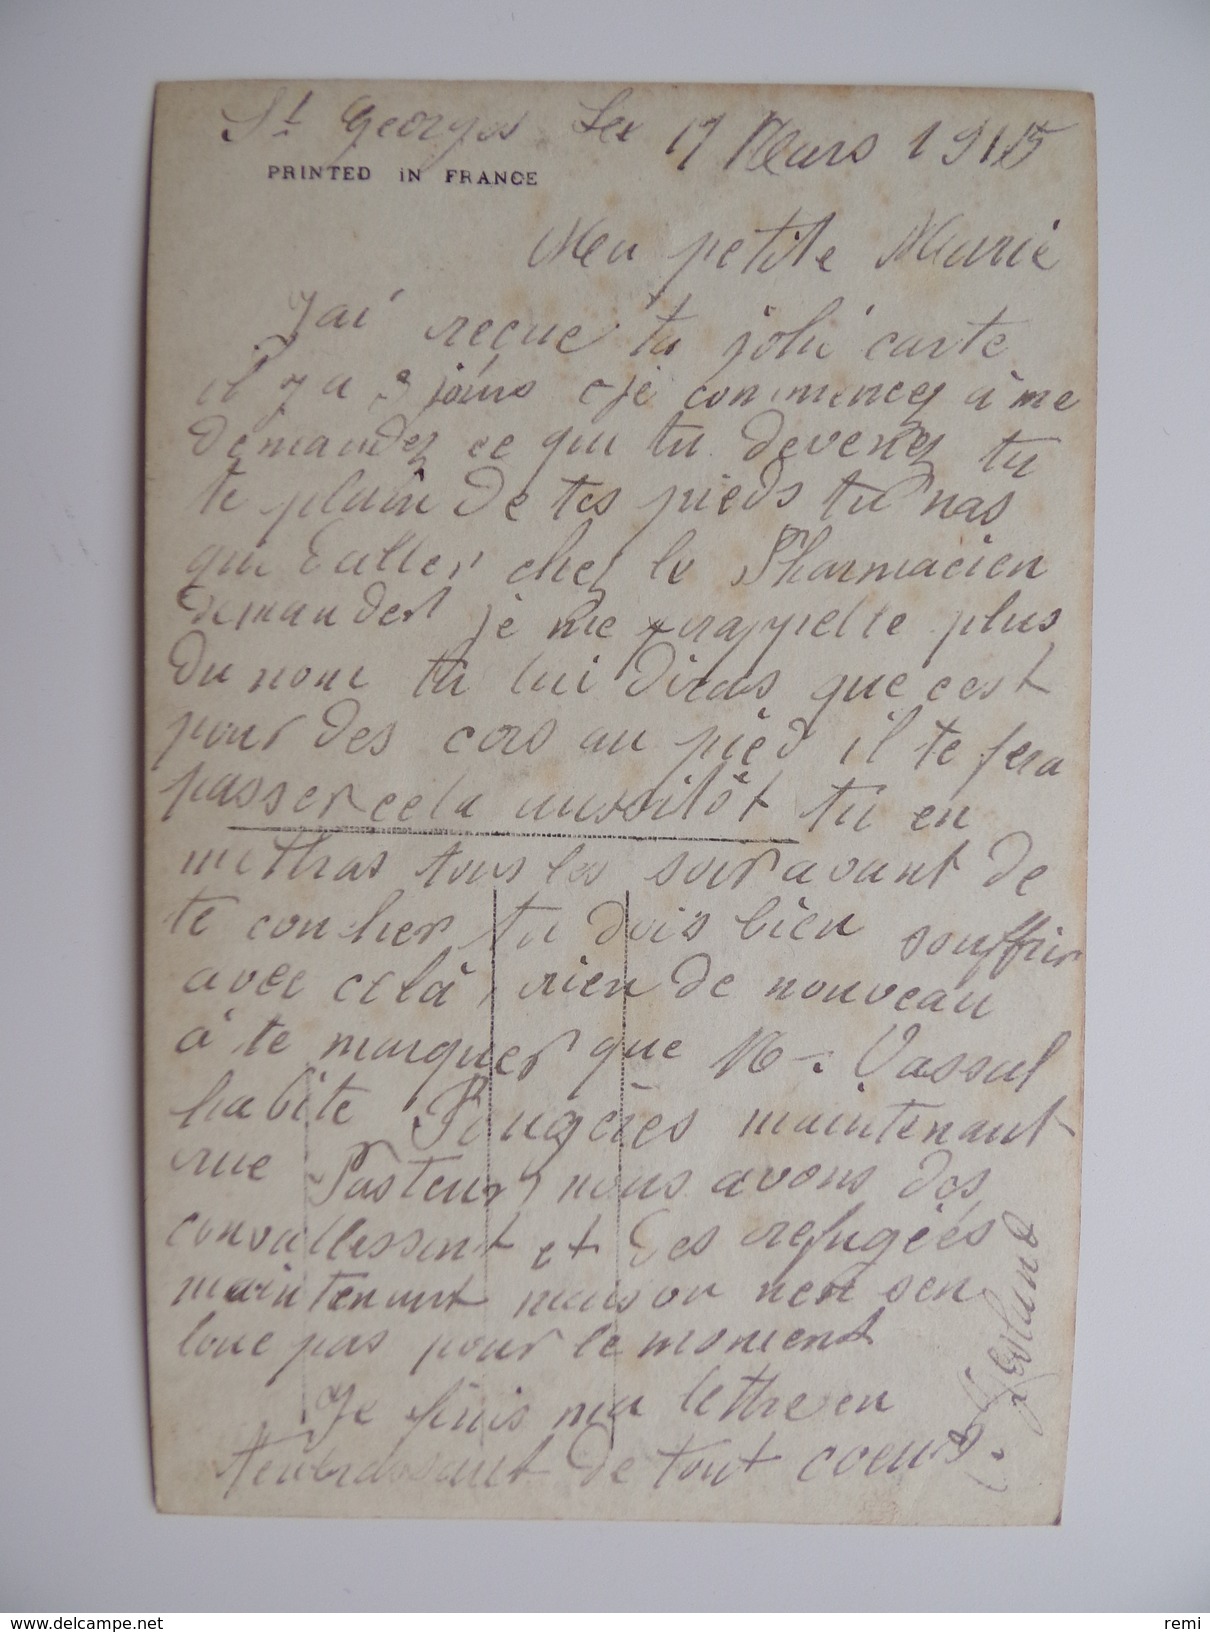 St Georges Les 17 Mars 1915
PRINTED IN FRANCE
Ma petite Marie
J'ai reçue ta joli carte
il y a 3 jours je commencez à me
demandez ce qui tu devenez tu
te plain de tes pieds tu nas
qui daller chez le Pharmacien
demander je me rappelle plus
du nom tu lui diras que cest
pour des cors au pied il te fera
passer cela aussitôt tu en
mettras tous les soir avant de
te coucher tu dois bien souffrir
avec celà, rien de nouveau
à te marquer que M. Vassal
habite Fougères maintenant
rue Pasteur, nous avons des
convallessent et des refugiées
maintenant maison nen sen
loue pas pour le moment
Je finis ma lettre en
t'embrassant de tout coeur